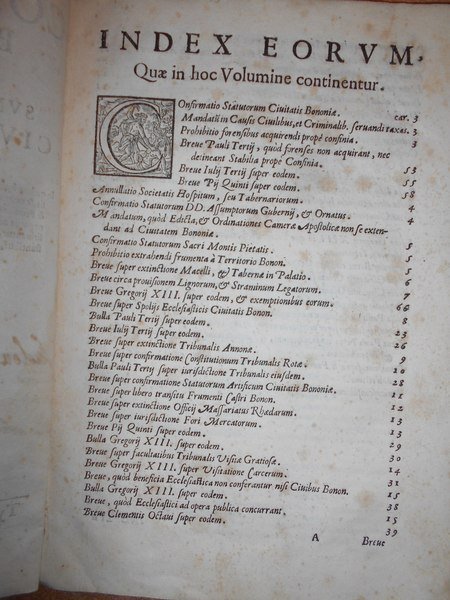 INDEX EORVM.
Quæ in hoc Volumine continentur.
COnfirmatio Statutorum Ciuitatis Bononiæ. car. 3
Mandatũ in Causis Ciuilibus, et Criminalib. seruandi taxas. 3
Prohibitio forensibus acquirendi propè confinia.
Breve Pauli Tertij, quòd forenses non acquirant, nec
delineant Stabilia propè Confinia. 53
Breve Iulij Tertij super eodem. 55
Breve Pij Quinti super eodem. 58
Annullatio Societatis Hospitum, seu Tabernariorum. 4
Confirmatio Statutorum DD. Assumptorum Gubernij, & Ornatus. 4
Mandatum, quòd Edicta, & Ordinationes Cameræ Apostolicæ non se exten-
dant ad Ciuitatem Bononiæ. 5
Confirmatio Statutorum Sacri Montis Pietatis. 5
Prohibitio extrahendi frumenta à Territorio Bonon. 5
Breve super extinctione Macelli, & Tabernæ in Palatio. 6
Breve circa prouisionem Lignorum, & Straminum Legatorum. 7
Breve Gregorij XIII. super eodem, & exemptionibus eorum. 66
Breve super Spolijs Ecclesiasticis Ciuitatis Bonon. 8
Bulla Pauli Tertij super eodem. 23
Breve Iulij Tertij super eodem. 26
Breve super extinctione Tribunalis Annonæ. 9
Breve super confirmatione Constitutionum Tribunalis Rotæ. 10
Bulla Pauli Tertij super iurisdictione Tribunalis eiusdem. 28
Breve super confirmatione Statutorum Artificum Ciuitatis Bononiæ. 11
Breve super libero transitu Frumenti Castri Bonon. 12
Breve super extinctione Officij Massariatus Rhedarum. 12
Breve super iurisdictione Fori Mercatorum.
Breve Pij Quinti super eodem. 29
Bulla Gregorij XIII. super eodem. 30
Breve super facultatibus Tribunalis Visitæ Gratiosæ. 14
Breve Gregorij XIII. super Visitatione Carcerum. 31
Breve, quòd beneficia Ecclesiastica non conferantur nisi Ciuibus Bonon. 15
Bulla Gregorij XIII. super eodem. 38
Breve, quòd Ecclesiastici ad opera publica concurrant. 15
Breve Clementis Octaui super eodem. 39
A Breve